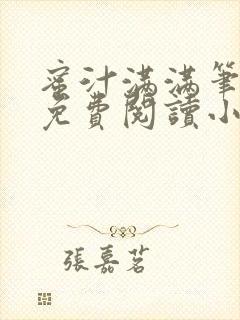 蜜汁滿滿筆
免費閱讀小
張嘉茗